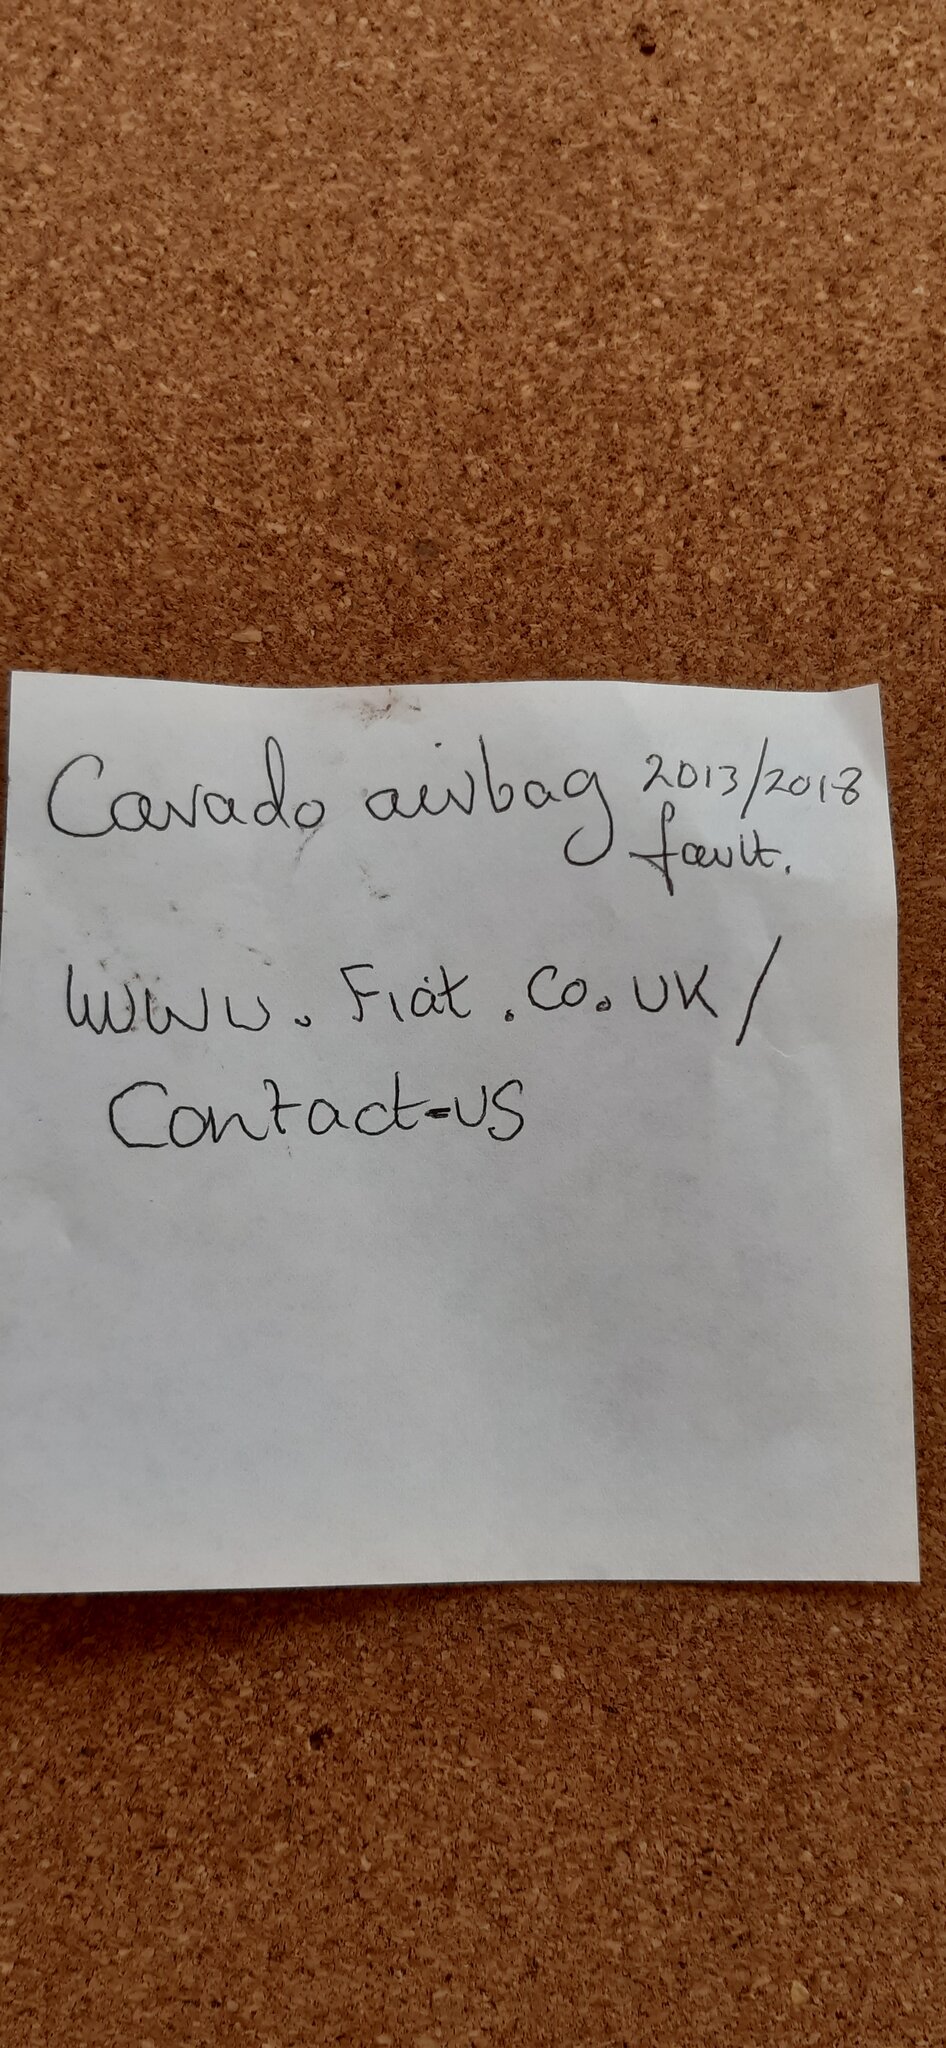 Carado airbag 2013/2018
fault.
www.Fiat.Co.UK/
Contact-US